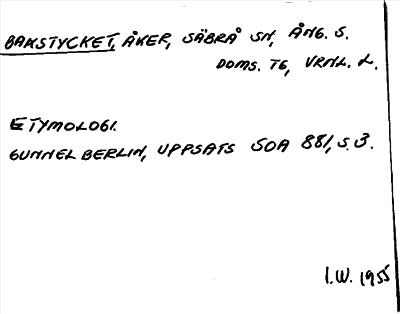 BAKSTYCKET, ÅKER, SÄBRÅ SN, ÅNG. S.
DOMS. TG, VRNL. L.
ETYMOLOGI.
GUNNEL BERLIN, UPPSATS SOA 881, S. 3.
I.W. 1955